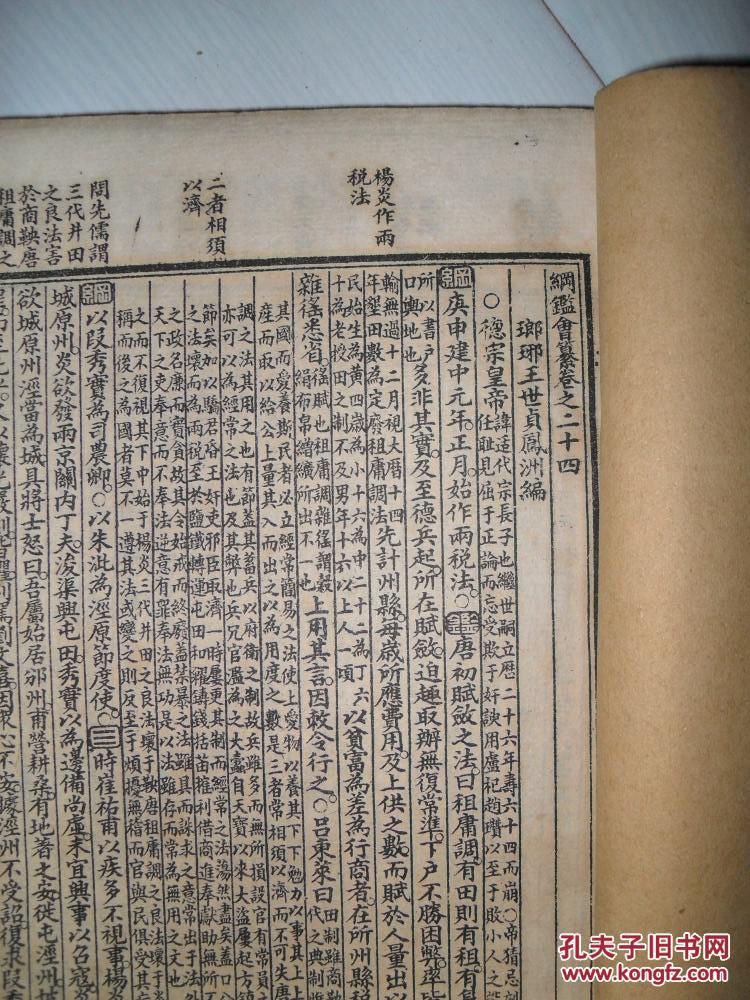 綱鑑會纂卷之二十四
瑯琊王世貞鳳洲編
○德宗皇帝
諱适代宗長子也繼世嗣立歷二十六年壽六十四而崩○帝猜忌刻
任耻見屈于正論而忘受欺于奸諛用盧杞趙瓚以至于敗小人之
綱庚申建中元年正月始作兩稅法○
唐初賦斂之法曰租庸調有田則有租有身
所以書戶
口輿地也
多非其實及至德兵起所在賦斂迫趣取辦無復常準下戶不勝困弊率皆
輸無過十二月視大曆十四
年墾田數為定廢租庸調法
先計州縣每歲所應費用及上供之數而賦於人量出以
民始生為黃四歲為小十六為中二十二為丁六
十為老授田之制不及男年十六以上人一頃
以貧富為差為行商者在所州縣稅
雜徭悉省
徭賦也租庸調雜徭謂穀
絹布帛繒纊所出不一也
上用其言因赦令行之○呂東萊曰
田制雖商鞅
代之典制
其國而愛養斯民者必立經常簡易之法使上愛物以養其下下勉力以事其上上
產而取以給公上量其入而出之以為用度之數是三者常相須以濟而不可失唐
調之法其用之也有節蓋其畜兵以府衛之制故兵雖多而無所損設官有常員之
亦可以為經常之法也及其弊也兵冗官濫為之大蠹自天寶以來大盜屢起方鎮
節矣加以驕君昏王奸吏邪臣取濟一時屢更其制而經常之法蕩然盡矣蓋口分
之法壞而為兩稅至於鹽鐵轉運屯田和糴鑄錢括苗搉利借商進奉獻助無所不
之政名廉而實貪故其令始戒而終廢蓋禁暴之法雖具而誅求之意常出于法外
天下之吏奉意而不奉法逆意有罪奉法無功是以法雖存而常為無用之文也
之而不復視其下中始于楊炎三代井田之良法壞于鞅唐租庸調之良法壞于
稱而後之為國者莫不一遵其法或變之則反至于煩擾無稽而官與民俱受其
綱以段秀實為司農卿○以朱泚為涇原節度使
時崔祐甫以疾多不視事楊炎
城原州炎欲發兩京關內丁夫浚渠興屯田秀實以為邊備尚虛未宜興事以召寇炎
欲城原州涇當為城具將士怒曰吾屬始居邠州甫營耕桑有地著之安徙屯涇州
因眾心不安據涇州不受詔復求段秀
楊炎作兩
稅法
二者相須
以濟
問先儒謂
三代井田
之良法害
於商鞅唐
租庸調之
孔夫子旧书网
www.kongfz.com